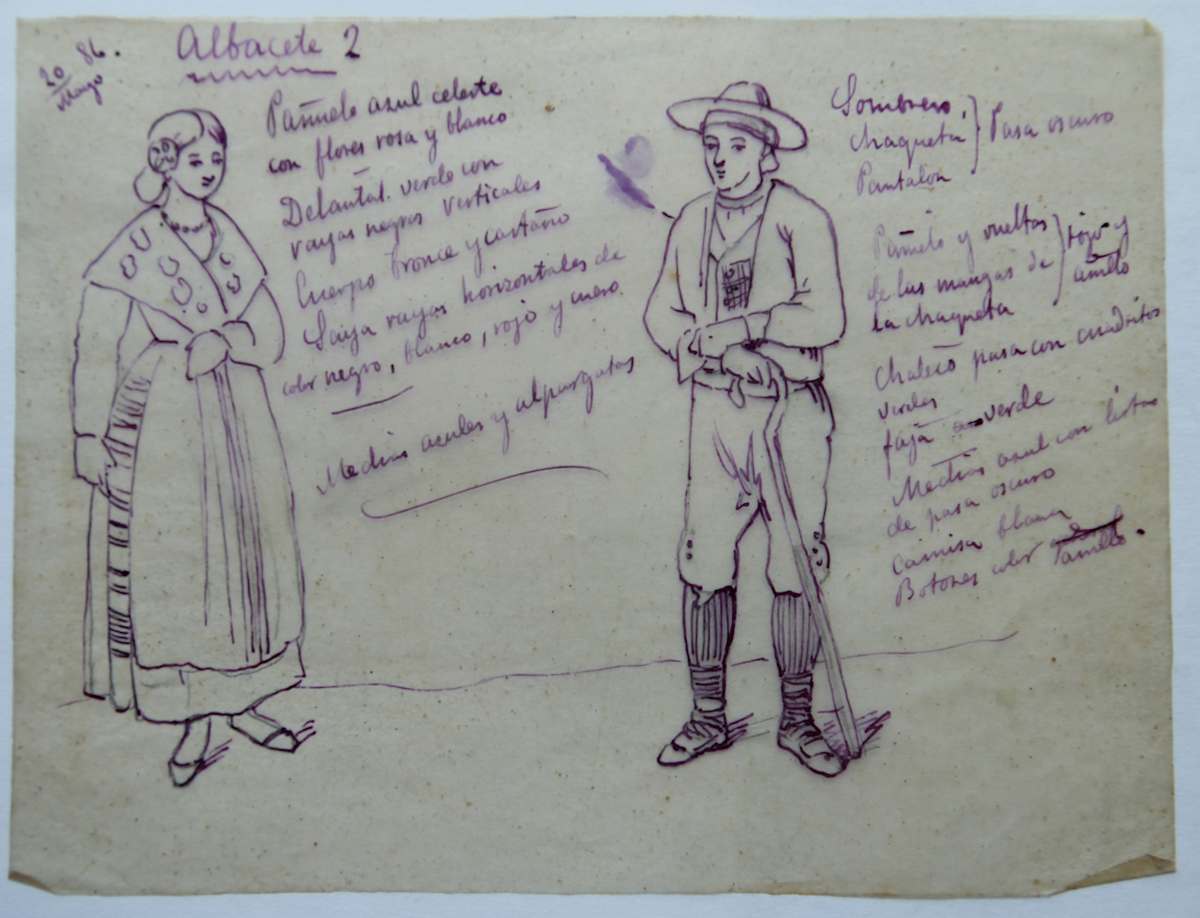 20 Mayo 86.
Albacete 2
Pañuelo azul celeste
con flores rosa y blanco
Delantal verde con
rayas negras verticales
Cuerpo bronce y castaño
Saya rayas horizontales de
color negro, blanco, rojo y cuero.
Medias azules y alpargatas
Sombrero
chaqueta } Pasa oscuro
Pantalón
Pañuelo y vueltas
de las mangas de } rojo y
la chaqueta amllo
Chaleco pasa con cuadritos
verdes
faja verde
Medias azul con listas
de pasa oscuro
camisa blanca
Botones color